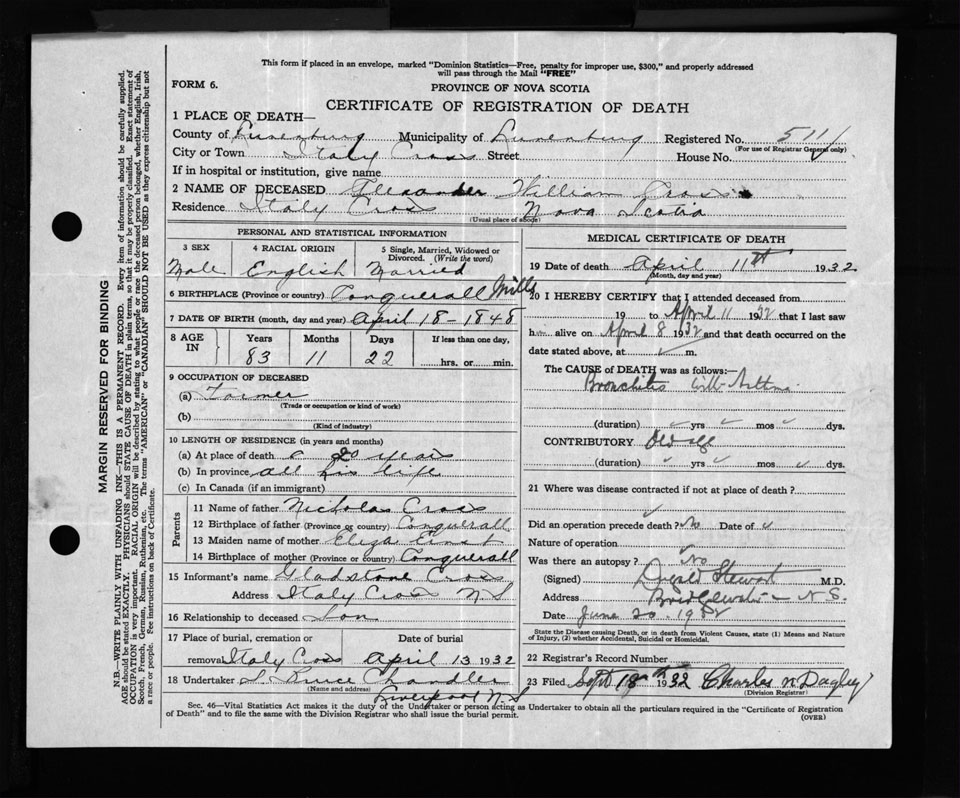 This form if placed in an envelope, marked "Dominion Statistics—Free, penalty for improper use, $300," and properly addressed
will pass through the Mail "FREE"
FORM 6.
PROVINCE OF NOVA SCOTIA
CERTIFICATE OF REGISTRATION OF DEATH
1 PLACE OF DEATH—
County of Lunenburg Municipality of Lunenburg Registered No. 511
(For use of Registrar General only)
City or Town Italy Cross Street House No.
If in hospital or institution, give name
2 NAME OF DECEASED Alexander William Cross
Residence Italy Cross Nova Scotia
(Usual place of abode)
PERSONAL AND STATISTICAL INFORMATION
3 SEX 4 RACIAL ORIGIN 5 Single, Married, Widowed or Divorced. (Write the word)
Male English Married
6 BIRTHPLACE (Province or country) Conquerall Mills
7 DATE OF BIRTH (month, day and year) April 18 - 1848
8 AGE IN Years Months Days If less than one day,
83 11 22 hrs. or min.
9 OCCUPATION OF DECEASED
(a) Farmer
(Trade or occupation or kind of work)
(b)
(Kind of industry)
10 LENGTH OF RESIDENCE (in years and months)
(a) At place of death 20 years
(b) In province all his life
(c) In Canada (if an immigrant)
Parents
11 Name of father Nicholas Cross
12 Birthplace of father (Province or country) Conquerall
13 Maiden name of mother Eliza Ernst
14 Birthplace of mother (Province or country) Conquerall
15 Informant's name Gladstone Cross
Address Italy Cross N S
16 Relationship to deceased Son
17 Place of burial, cremation or removal Italy Cross Date of burial April 13 1932
18 Undertaker Bruce Chandler
(Name and address)
Liverpool N. S
MEDICAL CERTIFICATE OF DEATH
19 Date of death April 11th 1932
(Month, day and year)
20 I HEREBY CERTIFY that I attended deceased from
19 to April 11 1932 that I last saw
him alive on April 8 1932 and that death occurred on
date stated above, at m.
The CAUSE of DEATH was as follows:—
Bronchitis with Asthma
(duration) yrs mos dys.
CONTRIBUTORY Old age
(duration) yrs mos dys.
21 Where was disease contracted if not at place of death?
Did an operation precede death? No Date of
Nature of operation
Was there an autopsy? No
(Signed) Dugald Stewart M.D.
Address Bridgewater - N S.
Date June 20. 1932
State the Disease causing Death, or in death from Violent Causes, state (1) Means and Nature
of Injury, (2) whether Accidental, Suicidal or Homicidal.
22 Registrar's Record Number
23 Filed Sept 18th 1932 Charles N Dagley
(Division Registrar)
Sec. 46—Vital Statistics Act makes it the duty of the Undertaker or person acting as Undertaker to obtain all the particulars required in the "Certificate of Registration
of Death" and to file the same with the Division Registrar who shall issue the burial permit.
(OVER)
MARGIN RESERVED FOR BINDING
N.B.—WRITE PLAINLY WITH UNFADING INK—THIS IS A PERMANENT RECORD. Every item of information should be carefully supplied.
AGE should be stated EXACTLY. PHYSICIANS should STATE CAUSE OF DEATH in plain terms, so that it may be properly classified. Exact statement of
OCCUPATION is very important. RACIAL ORIGIN will be described by stating to what people or race the deceased person belonged, whether English, Irish,
Scotch, French, German, Russian, Ruthenian, etc. The terms "AMERICAN" or "CANADIAN" SHOULD NOT BE USED as they express citizenship but not
a race or people. See instructions on back of Certificate.